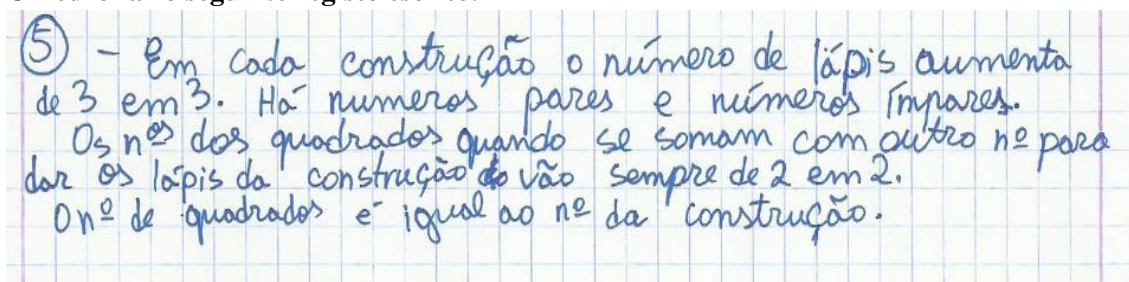 ⑤ - Em cada construção o número de lápis aumenta
de 3 em 3. Há numeros pares e números ímpares.
Os nºs dos quadrados quando se somam com outro nº para
dar os lápis da construção vão sempre de 2 em 2.
O nº de quadrados é igual ao nº da construção.